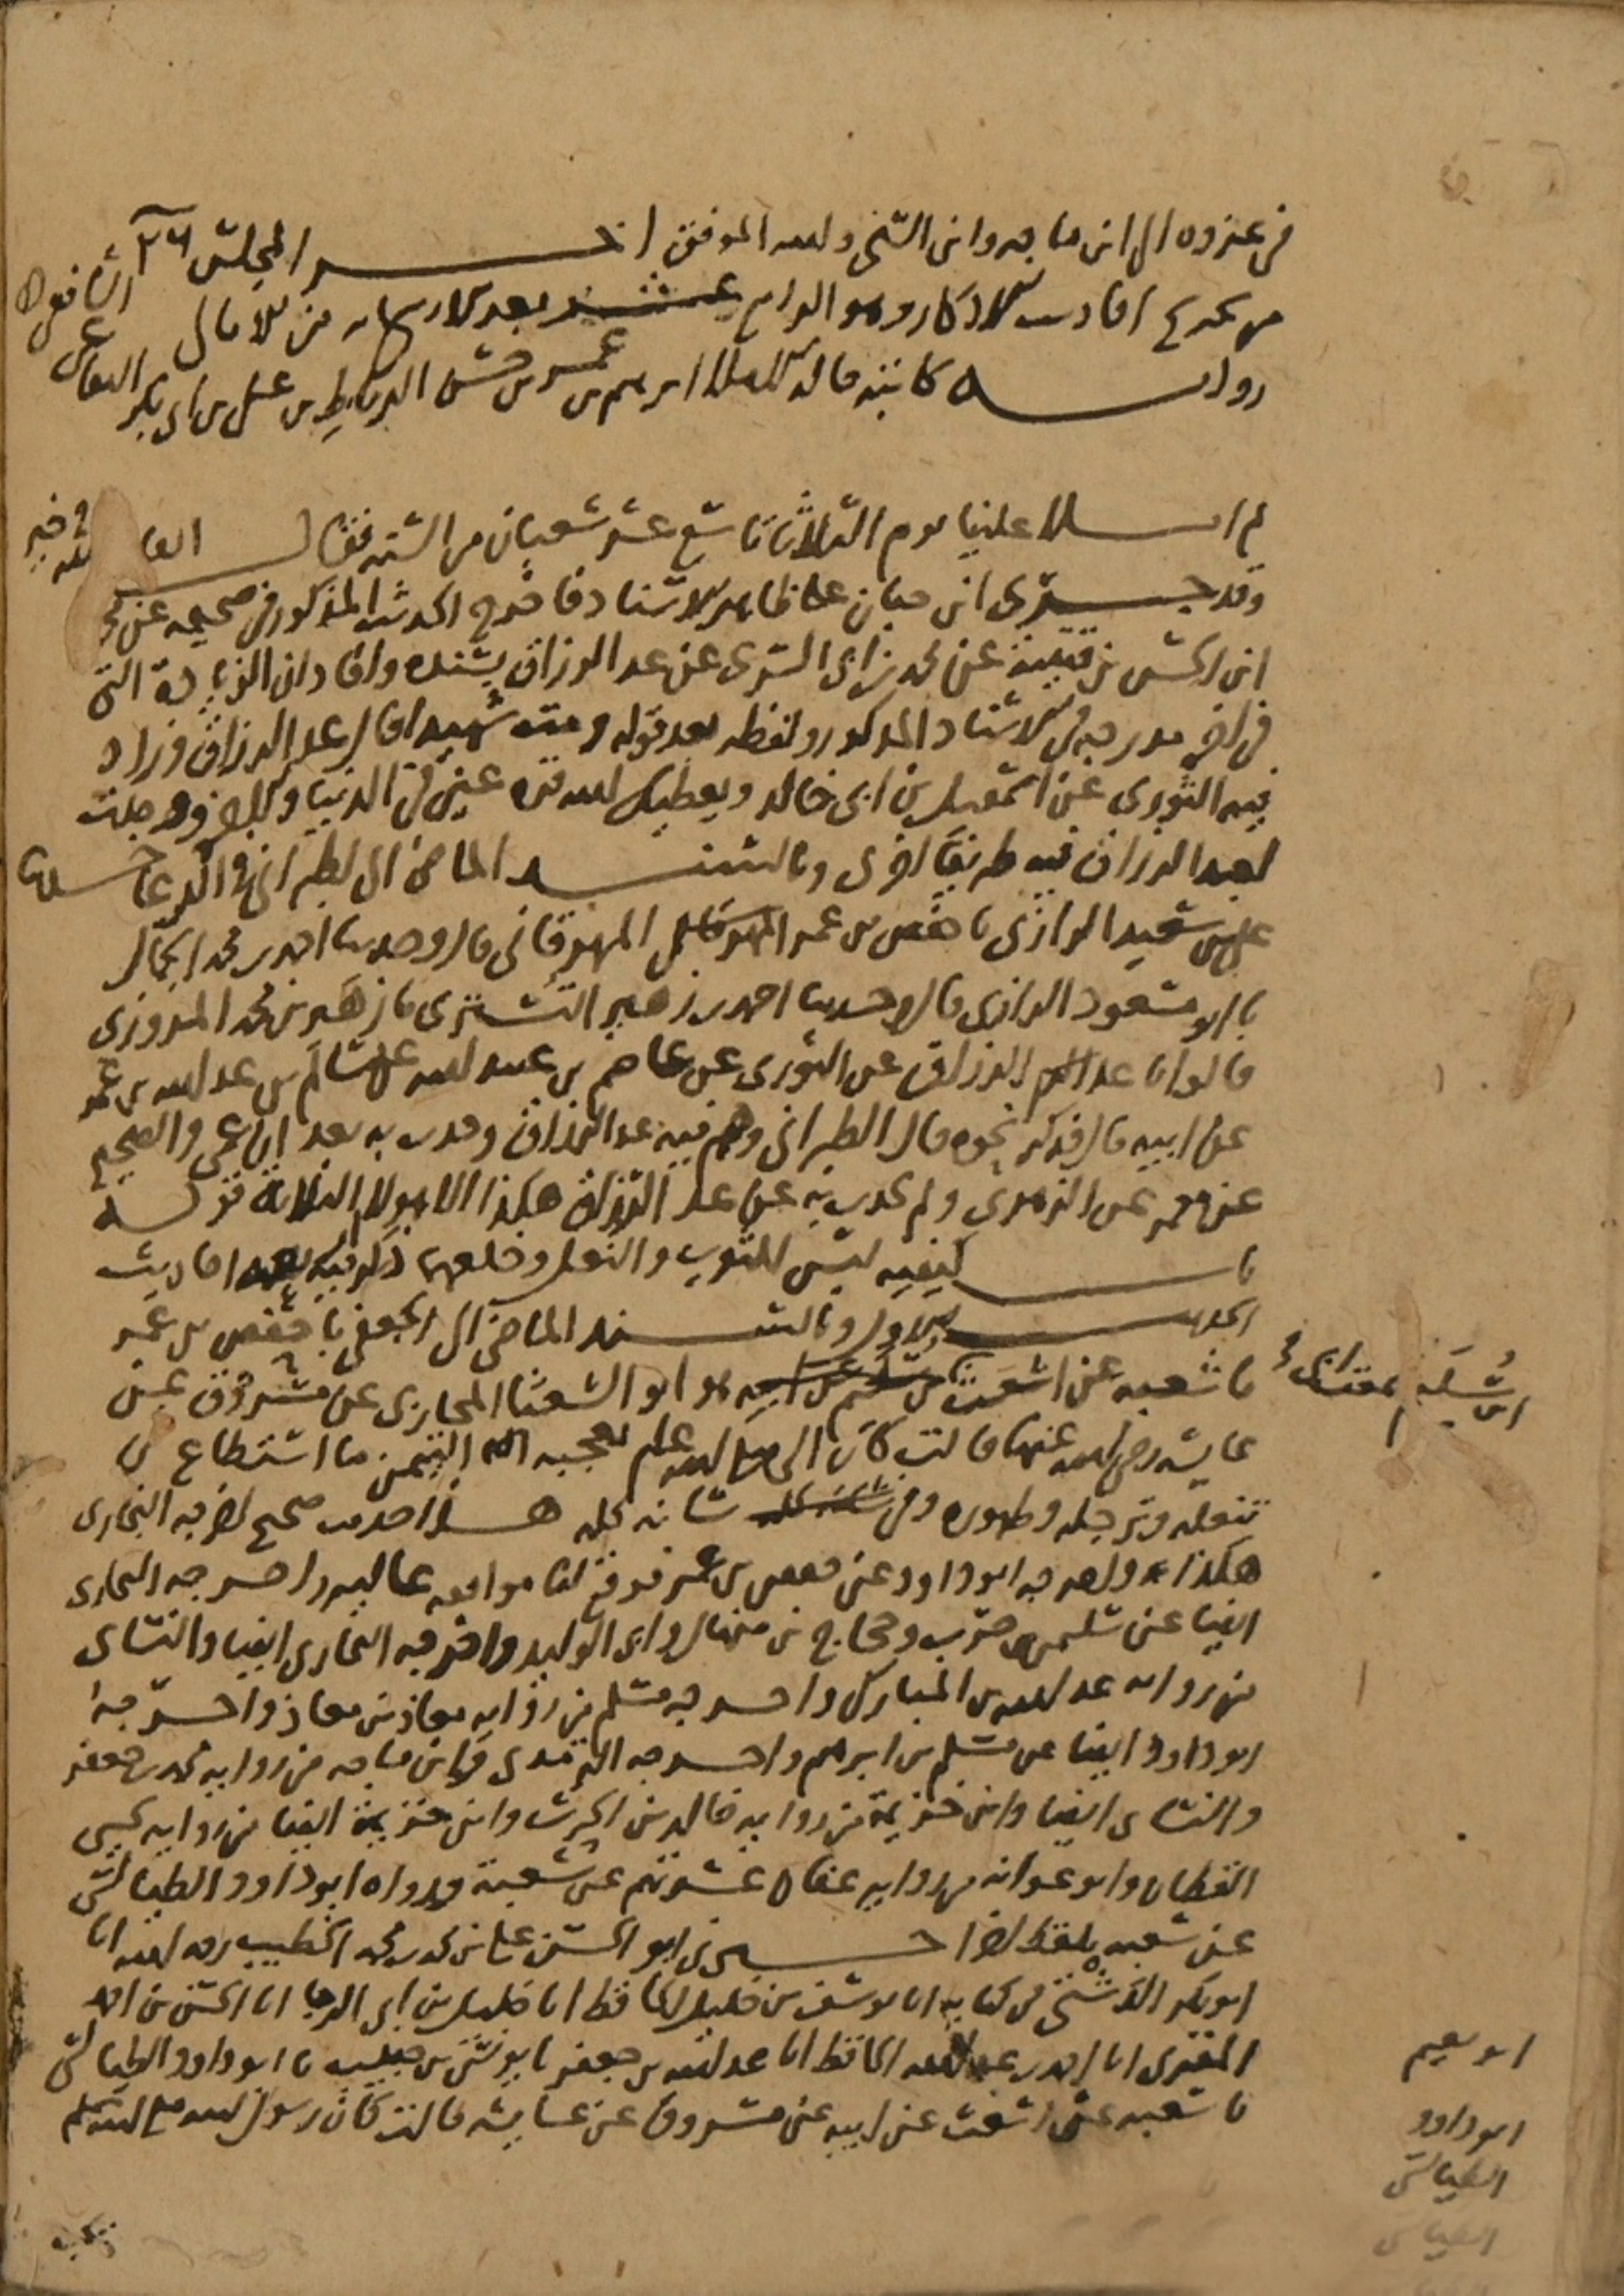 في عزوه الى ابن ماجه وابن السني والله الموفق اخر المجلس
من تخريج احاديث الاذكار وهو الرابع عشر بعد الاربعمائة من الامالي
رواية كاتبه قاله ابراهيم بن عمر بن حسن الرباط بن علي بن ابي بكر البقاعي الشافعي
ثم املا علينا يوم الثلاثاء تاسع عشر شعبان من السنة فقال
وقد جرى ابن حبان على ظاهر الاسناد فاخرج الحديث المذكور في صحيحه عن محمد
ابن الحسن بن قتيبة عن محمد بن ابي السري عن عبد الرزاق بسنده وافاد ان الزيادة التي
في اخره مدرجة في الاسناد المذكور ولفظه بعد قوله ومت شهيدا قال عبد الرزاق وزاد
فيه الثوري عن اسمعيل بن ابي خالد ويعطيك الله قرة عين في الدنيا والاخرة وقد وجدت
لعبد الرزاق فيه طريقا اخرى وبالسند الماضي الى الطبراني في الدعا
علي بن سعيد الرازي نا حفص بن عمر المهرقاني قال وحدثنا احمد بن محمد الجمال
نا ابو مسعود الرازي قال وحدثنا احمد بن زهير التستري نا زهير بن محمد المروزي
قالوا نا عبد الرزاق عن الثوري عن عاصم بن عبيد الله عن سالم بن عبد الله بن عمر
عن ابيه قال فذكر نحوه قال الطبراني وهم فيه عبد الرزاق وحدث به بعد ان عمي والصحيح
عن معمر عن الزهري ولم يحدث به عن عبد الرزاق هكذا الا هولاء الثلاثة قوله
باب كيفية لبس الثوب والنعل وخلعهما ذكر فيه احاديث
الحديث الاول وبالسند الماضي الى الجعفي نا حفص بن عمر
نا شعبه عن اشعث بن سليم عن ابيه هو ابو الشعثا المحاربي عن مسروق عن
عايشه رضي الله عنها قالت كان النبي صلى الله عليه وسلم يعجبه التيمن ما استطاع في
تنعله وترجله وطهوره وفي شانه كله هذا حديث صحيح اخرجه البخاري
هكذا واخرجه ابو داود عن حفص بن عمر فوقع لنا موافقه عاليه واخرجه البخاري
ايضا عن سليمن بن حرب وحجاج بن منهال وابي الوليد واخرجه البخاري ايضا والنساي
من رواية عبد الله بن المبارك واخرجه مسلم من رواية معاذ بن معاذ واخرجه
ابو داود ايضا عن مسلم بن ابرهيم واخرجه الترمذي وابن ماجه من روايه محمد بن جعفر
والنساي ايضا وابن خزيمة من روايه خالد بن الحرث وابن خزيمة ايضا من روايه يحيى
القطان وابو عوانه من روايه عفان عشرتهم عن شعبة ورواه ابو داود الطيالسي
عن شعبه بلفظ اخر اخبرني ابو الحسن علي بن محمد بن محمد الخطيب رحمه الله انا
ابو بكر الدشتي في كتابه انا يوسف بن خليل الحافظ انا خليل بن ابي الرجا انا الحسن بن احمد
المقري انا احمد بن عبد الله الحافظ انا عبد الله بن جعفر نا يونس بن حبيب نا ابو داود الطيالسي
نا شعبه عن اشعث عن ابيه عن مسروق عن عايشه قالت كان رسول الله صلى الله عليه وسلم
ابو نعيم
ابو داود
الطيالسي